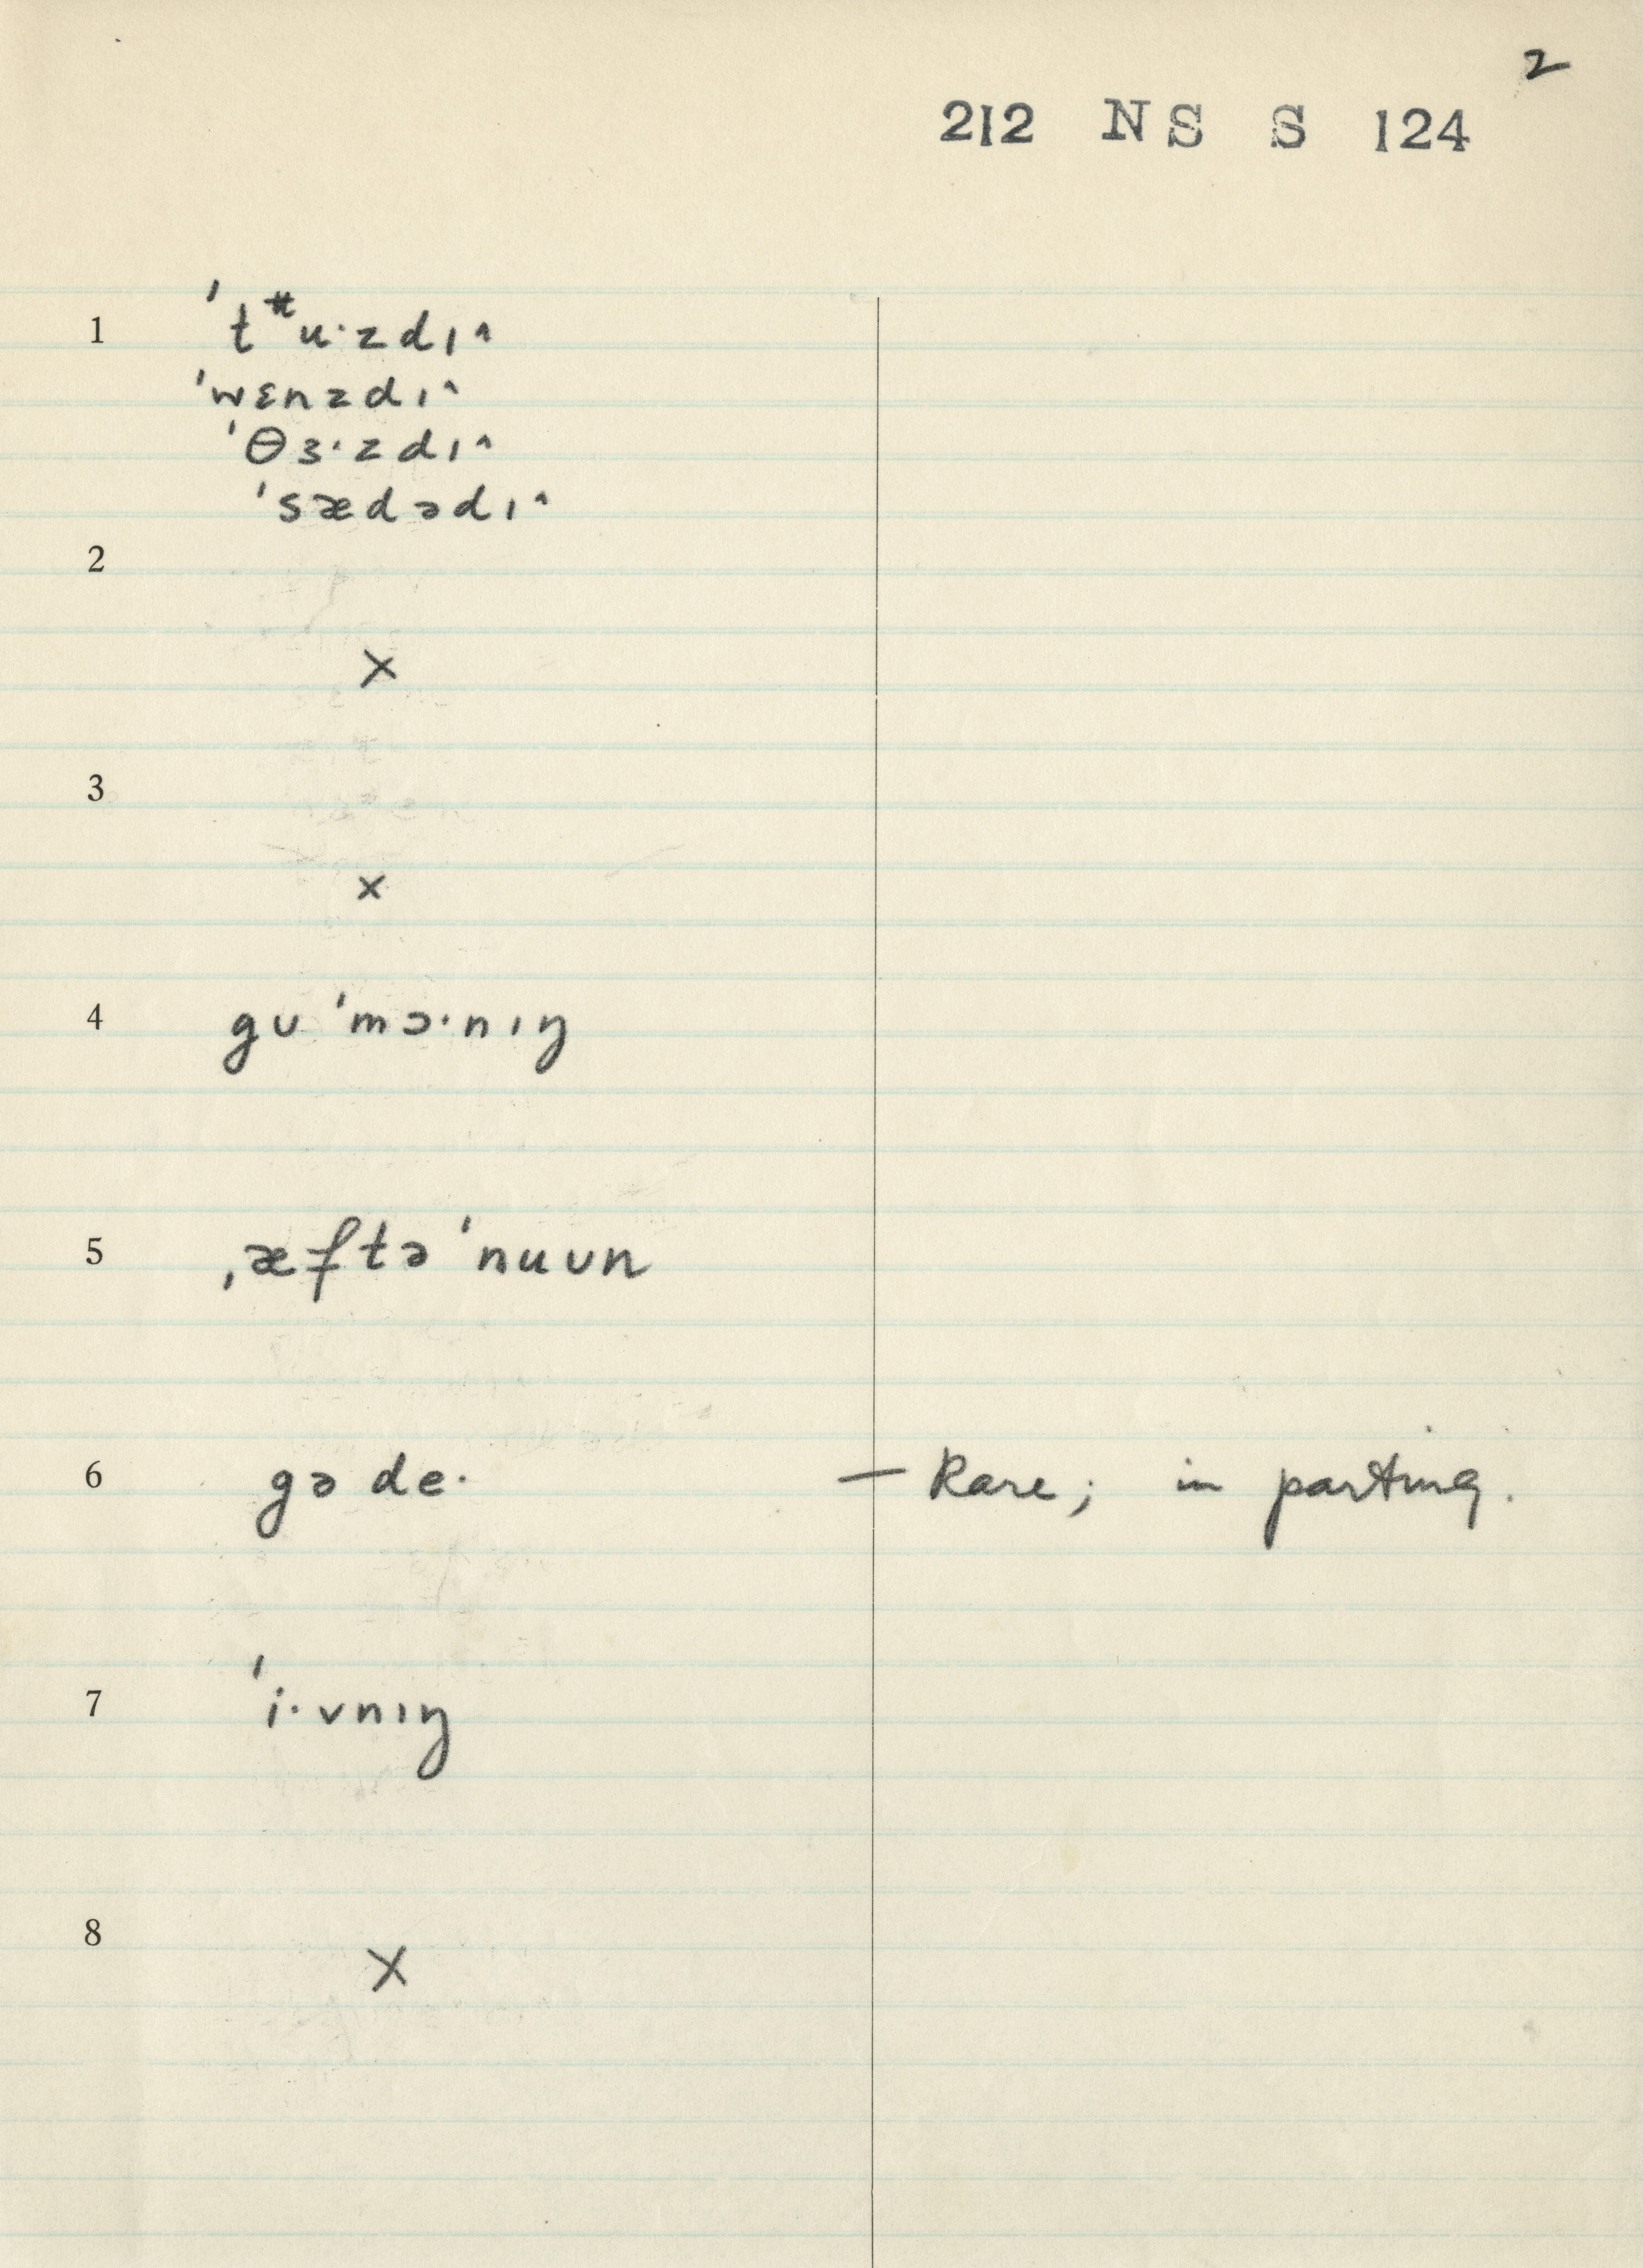 2
212 NS S 124
1 ˈtᵻuˑzdɪ˄
ˈwɛnzdɪ˄
ˈθɜˑzdɪ˄
ˈsædədɪ˄
2
×
3
×
4 gʊ ˈmɔˑnɪŋ
5 ˌæftəˈnuʊn
6 gə deˑ — Rare; in parting.
7 ˈiˑvnɪŋ
8
×